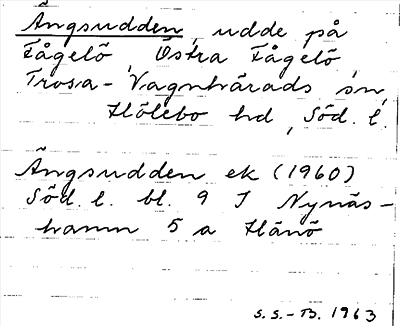 Ängsudden, udde på
Fågelö, Östra Fågelö,
Trosa-Vagnhärads sn,
Hölebo hd, Söd. l.
Ängsudden ek (1960)
Söd. l. bl. 9 I Nynäs-
hamn 5 a Hänö
S.S.-B. 1963